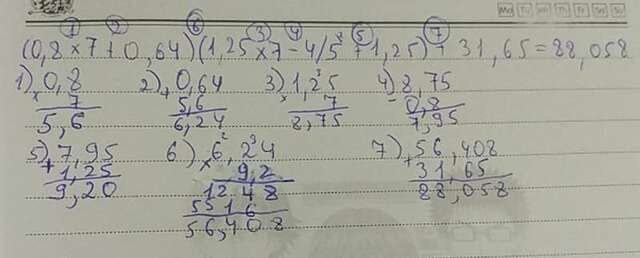 Mo Tu We Th Fr Sa Su
① ② ⑥ ③ ④ ⑤ ⑦
(0,8×7+0,64)(1,25×7-4/5+1,25)+31,65=88,058
1) 0,8 2) 0,64 3) 1,25 4) 8,75
× 7 + 5,6 × 7 - 0,8
5,6 6,24 8,75 7,95
5) 7,95 6) 6,24 7) 56,408
+ 1,25 × 9,2 + 31,65
9,20 1248 88,058
5516
56,408